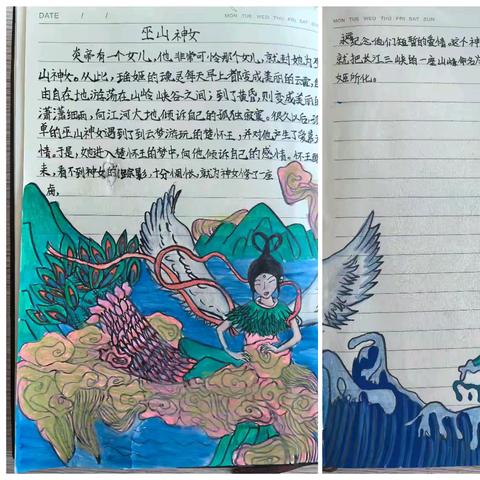 DATE / /
MON TUE WED THU FRI SAT SUN
巫山神女
炎帝有一个女儿,他非常可怜那个女儿,就封她为巫
山神女。从此,瑶姬的魂灵每天早上都变成美丽的云霞,
由自在地游荡在山岭峡谷之间;到了黄昏,则变成美丽的
潇潇细雨,向江河大地倾诉自己的孤独寂寞。很久以后,孤
单的巫山神女遇到了到云梦游玩的楚怀王,并对他产生了爱慕
情。于是,她进入楚怀王的梦中,向他倾诉自己的感情。怀王醒
来,看不到神女的踪影,十分惆怅,就为神女修了一座
庙,
MON TUE WED THU FRI SAT SUN
纪念他们短暂的爱情。这个神
就把长江三峡的一座山峰命名为
姬所化。